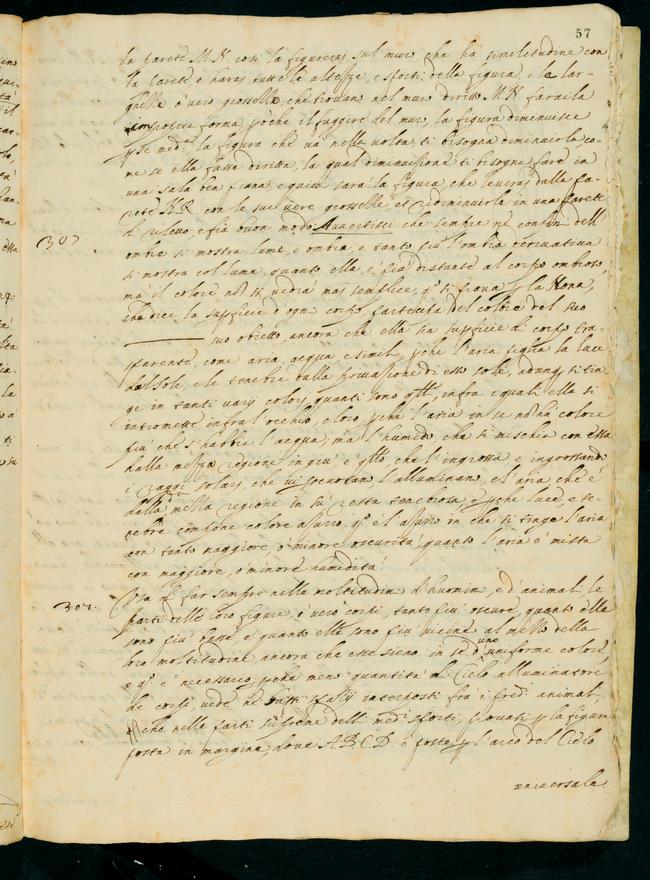 57
la parete M.N. così la figurerai sul muro, che ha similitudine con
la parete, e harai tutte le altezze, e sporti della figura, e le lar-
ghezze, ò vero grossezze, che trovan nel muro diritto M.N. farai la
propria forma perche il fuggire del muro, la figura diminuisce
p se med. la figura che và nella volta, ti bisogna diminuirla co-
me se ella fusse diritta, la qual diminuzione ti bisogna fare in
una sala ben piana, e quivi sarà la figura, che leverai dalla pa-
rete con le sue vere grossezze et ridiminuirla in una parete
di rilevo, e fia buon modo. Avvertisci che sempre nè confini dell'
307
ombre si mostra lume, e ombra, e tanto più l'ombra derivativa
si mostra col lume, quanto ella, è più distante al corpo ombroso,
mà il colore nō si vedrà mai semplice, qo si prova p la Nona,
che dice la superficie d'ogni corpo participa del colore del suo
suo obietto, ancora che ella hà superficie di corpo tra-
sparente, come aria, acqua, e simili, pche l'aria piglia la luce
dal sole, e le tenebre dalla privazione di esso sole, adunq si tin-
ge in tanti varij colori, quanti sono qlli, infra e quali ella si
intromette infra l'occhio, e loro, pche l'aria in se nō hà colore
più che s'habbia l'acqua, ma l'humido, che si mischia con essa
dalla mezza regione in giù, è qllo che l'ingrossa e ingrossando
i raggi solari, che vi percuotan l'alluminano, e l'aria che è
dalla mezza regione in sù resta tenebrosa, e pche luce, e te-
nebra compone colore azurro, qo è l'azurro in che si tinge l'aria
con tanto maggiore, ò minore oscurità, quanto l'aria è mista
con maggiore, ò minore humidità.
307.
Usa di far sempre nella moltitudin d'huomini, e d'animali le
parti delle loro figure, ò vero corpi, tanto più oscure, quanto elle
sono più basse e quanto elle sono più vicine al mezzo della
loro moltitudine ancora che esse sieno in se d' uno uniforme colore,
e qo è necessario, pche meno quantità di Cielo alluminatore
de corpi vede nè bassi spatij interposti frà i predi animali
che nelle parti supreme delli medi sporti, provati p la figura
posta in margine, dove A.B.C.D. è posto p l'arco del Cielo
universale